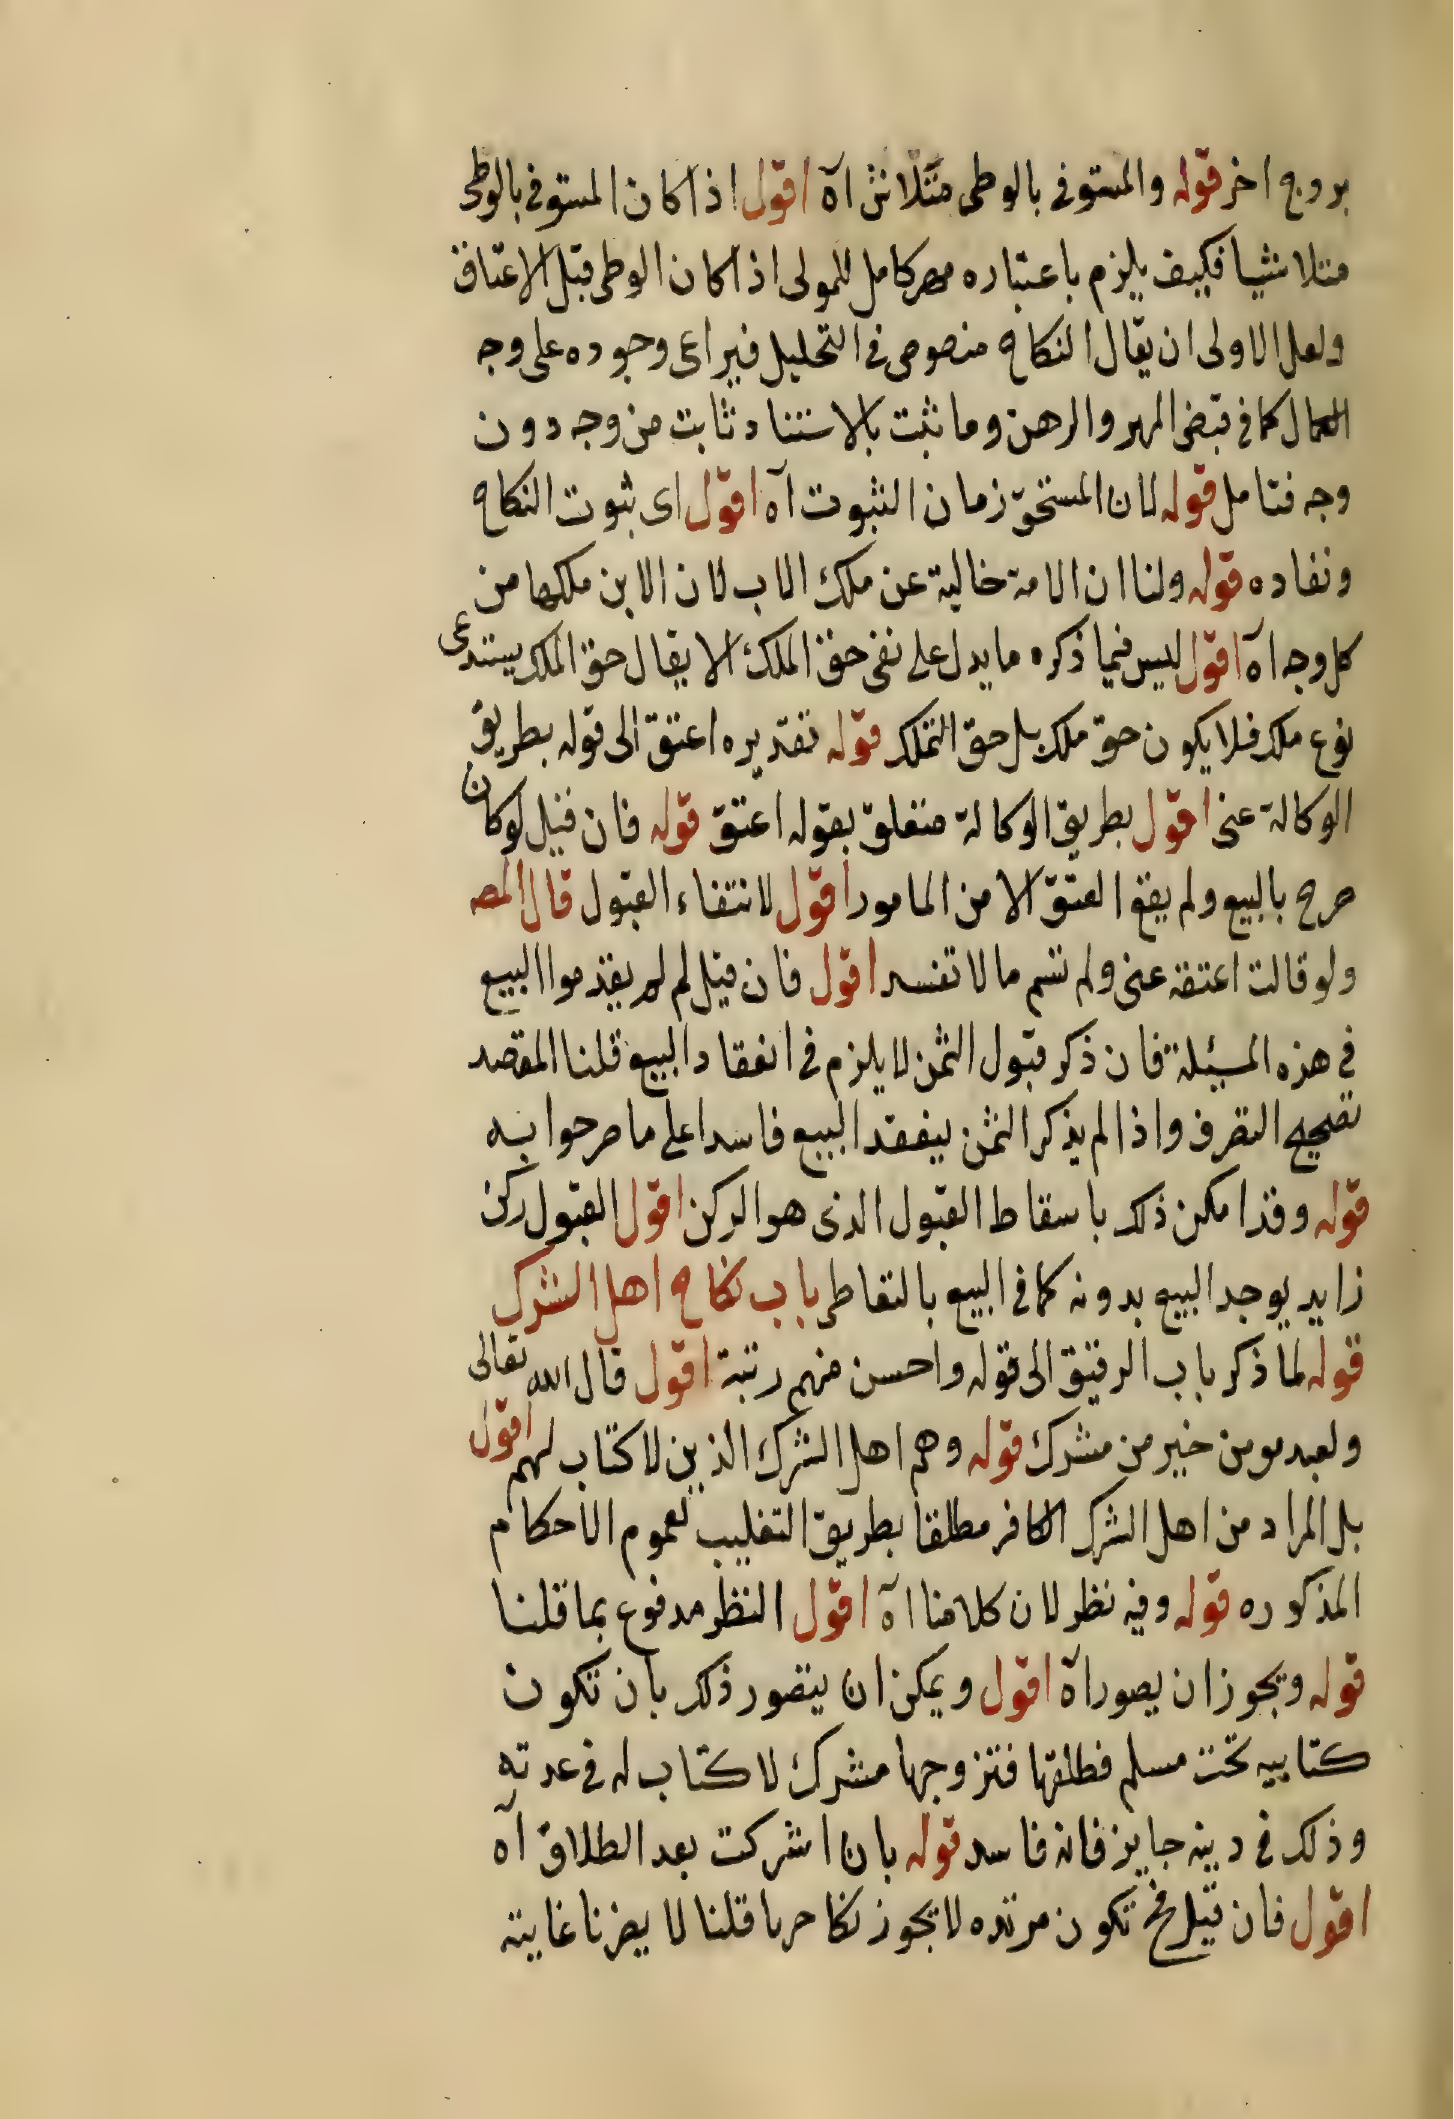 بزوج اخر قوله والمستوفى بالوطى متلاش آه اقول اذا كان المستوفى بالوطى
متلاشيا فكيف يلزم باعتباره مهر كامل للمولى اذا كان الوطى قبل الاعتاق
ولعل الاولى ان يقال النكاح منصوص فى التحليل فيراعى وجوده على وجه
الكمال كما فى قبض المهر والرهن وما ثبت بالاستناد ثابت من وجه دون
وجه فتامل قوله لان المستحق زمان الثبوت آه اقول اى ثبوت النكاح
ونفاده قوله ولنا ان الامة خالية عن ملك الاب لان الابن ملكها من
كل وجه آه اقول ليس فيما ذكره ما يدل على نفى حق الملك الا يقال حق الملك يستدعى
نوع ملك فلا يكون حق ملك بل حق التملك قوله تقديره اعتق الى قوله بطريق
الوكالة عنى اقول بطريق الوكالة متعلق بقوله اعتق قوله فان قيل لو كان
صرح بالبيع ولم يقع العتق الا من المامور اقول لانتفاء القبول قال المصـ
ولو قالت اعتقه عنى ولم تسم مالا تفسد اقول فان قيل لم لم يقدموا البيع
فى هذه المسئلة فان ذكر قبول الثمن لا يلزم فى انعقاد البيع قلنا المقصد
تصحيح التصرف واذا لم يذكر الثمن ينعقد البيع فاسدا على ما صرحوا به
قوله وقد امكن ذلك باسقاط القبول الذى هو الركن اقول القبول ركن
زايد يوجد البيع بدونه كما فى البيع بالتعاطى باب نكاح اهل الشرك
قوله لما ذكر باب الرقيق الى قوله واحسن منهم رتبة اقول قال الله تعالى
ولعبد مومن خير من مشرك قوله وهم اهل الشرك الذين لا كتاب لهم اقول
بل المراد من اهل الشرك الكافر مطلقا بطريق التغليب لعموم الاحكام
المذكوره قوله وفيه نظر لان كلامنا آه اقول النظر مدفوع بما قلنا
قوله ويجوز ان يصور آه اقول ويمكن ان يتصور ذلك بان تكون
كتابيه تحت مسلم فطلقها فتزوجها مشرك لا كتاب له فى عدته
وذلك فى دينه جايز فانه فاسد قوله بان اشركت بعد الطلاق آه
اقول فان قيل فح تكون مرتده لا يجوز نكاحها قلنا لا يضرنا غايته